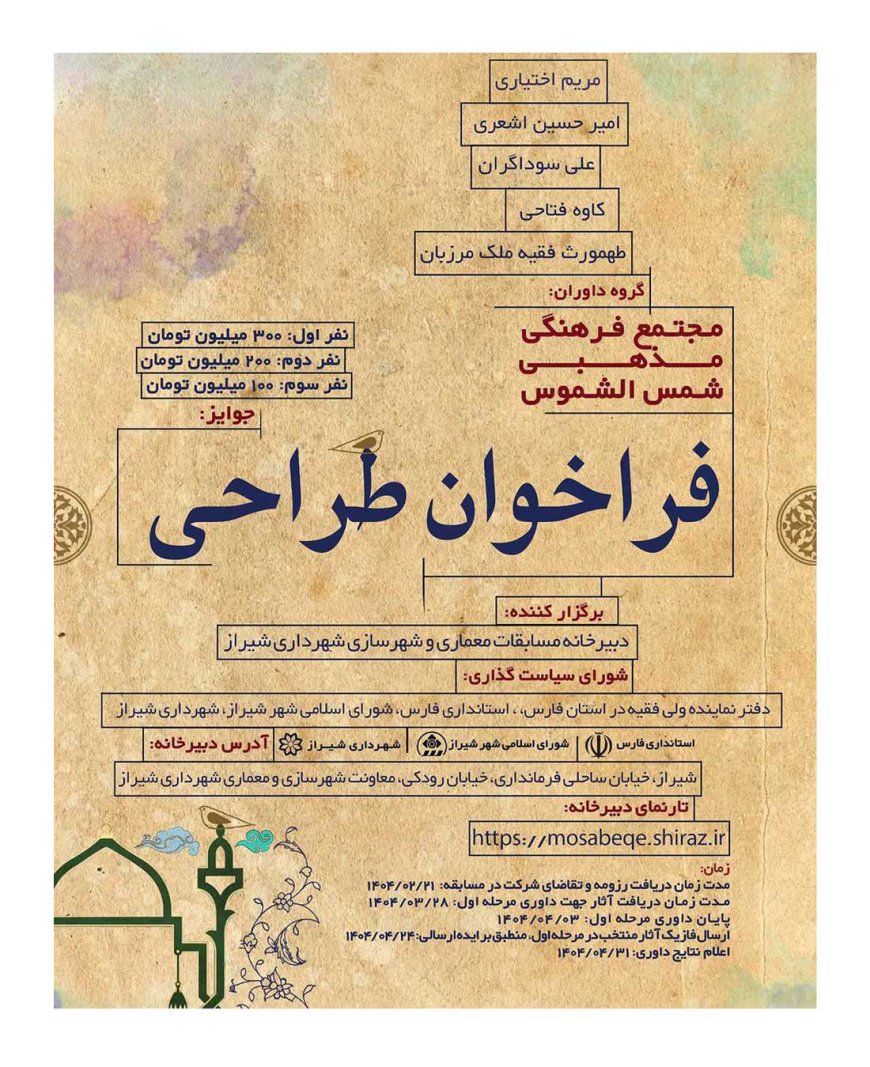 مریم اختیاری
امیر حسین اشعری
علی سوداگران
کاوه فتاحی
طهمورث فقیه ملک مرزبان
گروه داوران:
مجتمع فرهنگی
مذهبی
شمس الشموس
نفر اول: ۳۰۰ میلیون تومان
نفر دوم: ۲۰۰ میلیون تومان
نفر سوم: ۱۰۰ میلیون تومان
جوایز:
فراخوان طراحی
برگزار کننده:
دبیرخانه مسابقات معماری و شهرسازی شهرداری شیراز
شورای سیاست گذاری:
دفتر نماینده ولی فقیه در استان فارس، ، استانداری فارس، شورای اسلامی شهر شیراز، شهرداری شیراز
استانداری فارس | شورای اسلامی شهر شیراز | شهرداری شیراز
آدرس دبیرخانه:
شیراز، خیابان ساحلی فرمانداری، خیابان رودکی، معاونت شهرسازی و معماری شهرداری شیراز
تارنمای دبیرخانه:
https://mosabeqe.shiraz.ir
زمان:
مدت زمان دریافت رزومه و تقاضای شرکت در مسابقه: ۱۴۰۴/۰۲/۲۱
مدت زمان دریافت آثار جهت داوری مرحله اول: ۱۴۰۴/۰۳/۲۸
پایان داوری مرحله اول: ۱۴۰۴/۰۴/۰۳
ارسال فازیک آثار منتخب در مرحله اول، منطبق بر ایده ارسالی: ۱۴۰۴/۰۴/۲۴
اعلام نتایج داوری: ۱۴۰۴/۰۴/۳۱